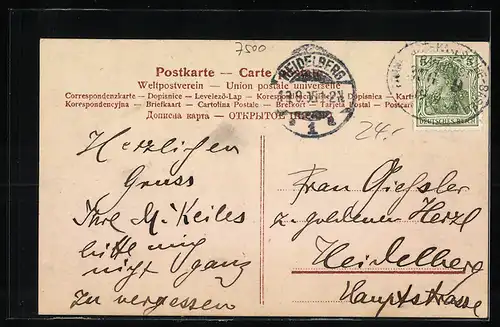 7500
Postkarte — Carte
Weltpostverein — Union postale universelle
Correspondenzkarte — Dopisnice — Levelező-Lap — Dopisnica — Kart
Korespondencyjna — Briefkaart — Cartolina Postale — Brefkort — Tarjeta Postal — Postcard
Дописна карта — ОТКРЫТОЕ
HEIDELBERG
1
5 5
DEUTSCHES REICH
24.-
Herzlichen
Gruss
Ihre
bitte mich
nicht ganz
zu vergessen
Frau Giessler
z. goldenen Herzl
Heidelberg
Hauptstrasse